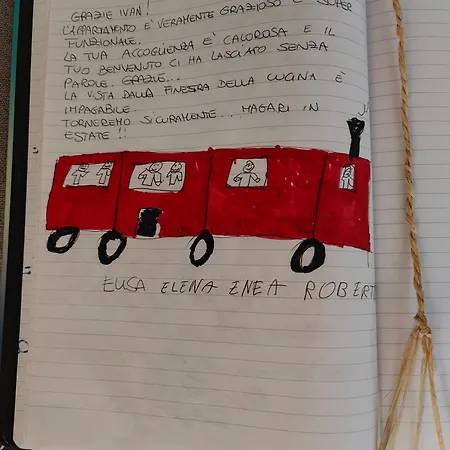 GRAZIE IVAN!
L'APPARTAMENTO E' VERAMENTE GRAZIOSO E SUPER
FUNZIONALE.
LA TUA ACCOGLIENZA E' CALOROSA E IL
TUO BENVENUTO CI HA LASCIATO SENZA
PAROLE. GRAZIE...
LA VISTA DALLA FINESTRA DELLA CUCINA È
IMPAGABILE.
TORNEREMO SICURAMENTE... MAGARI IN
ESTATE!!
ELISA ELENA ENEA ROBERT